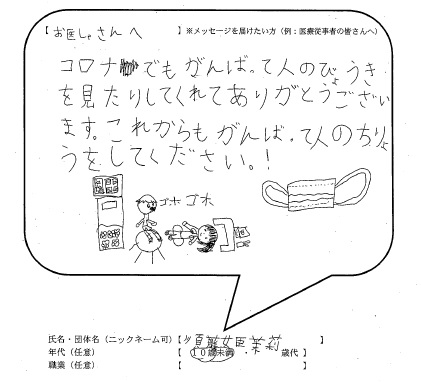 【お医しゃさんへ 】※メッセージを届けたい方（例：医療従事者の皆さんへ）
コロナでもがんばって人のびょうき
を見たりしてくれてありがとうござい
ます。これからもがんばって人のちりょ
うをしてください。！
ゴホ ゴホ
氏名・団体名（ニックネーム可）【 】
年代（任意） 【 10歳未満 ・ 歳代 】
職業（任意） 【 】